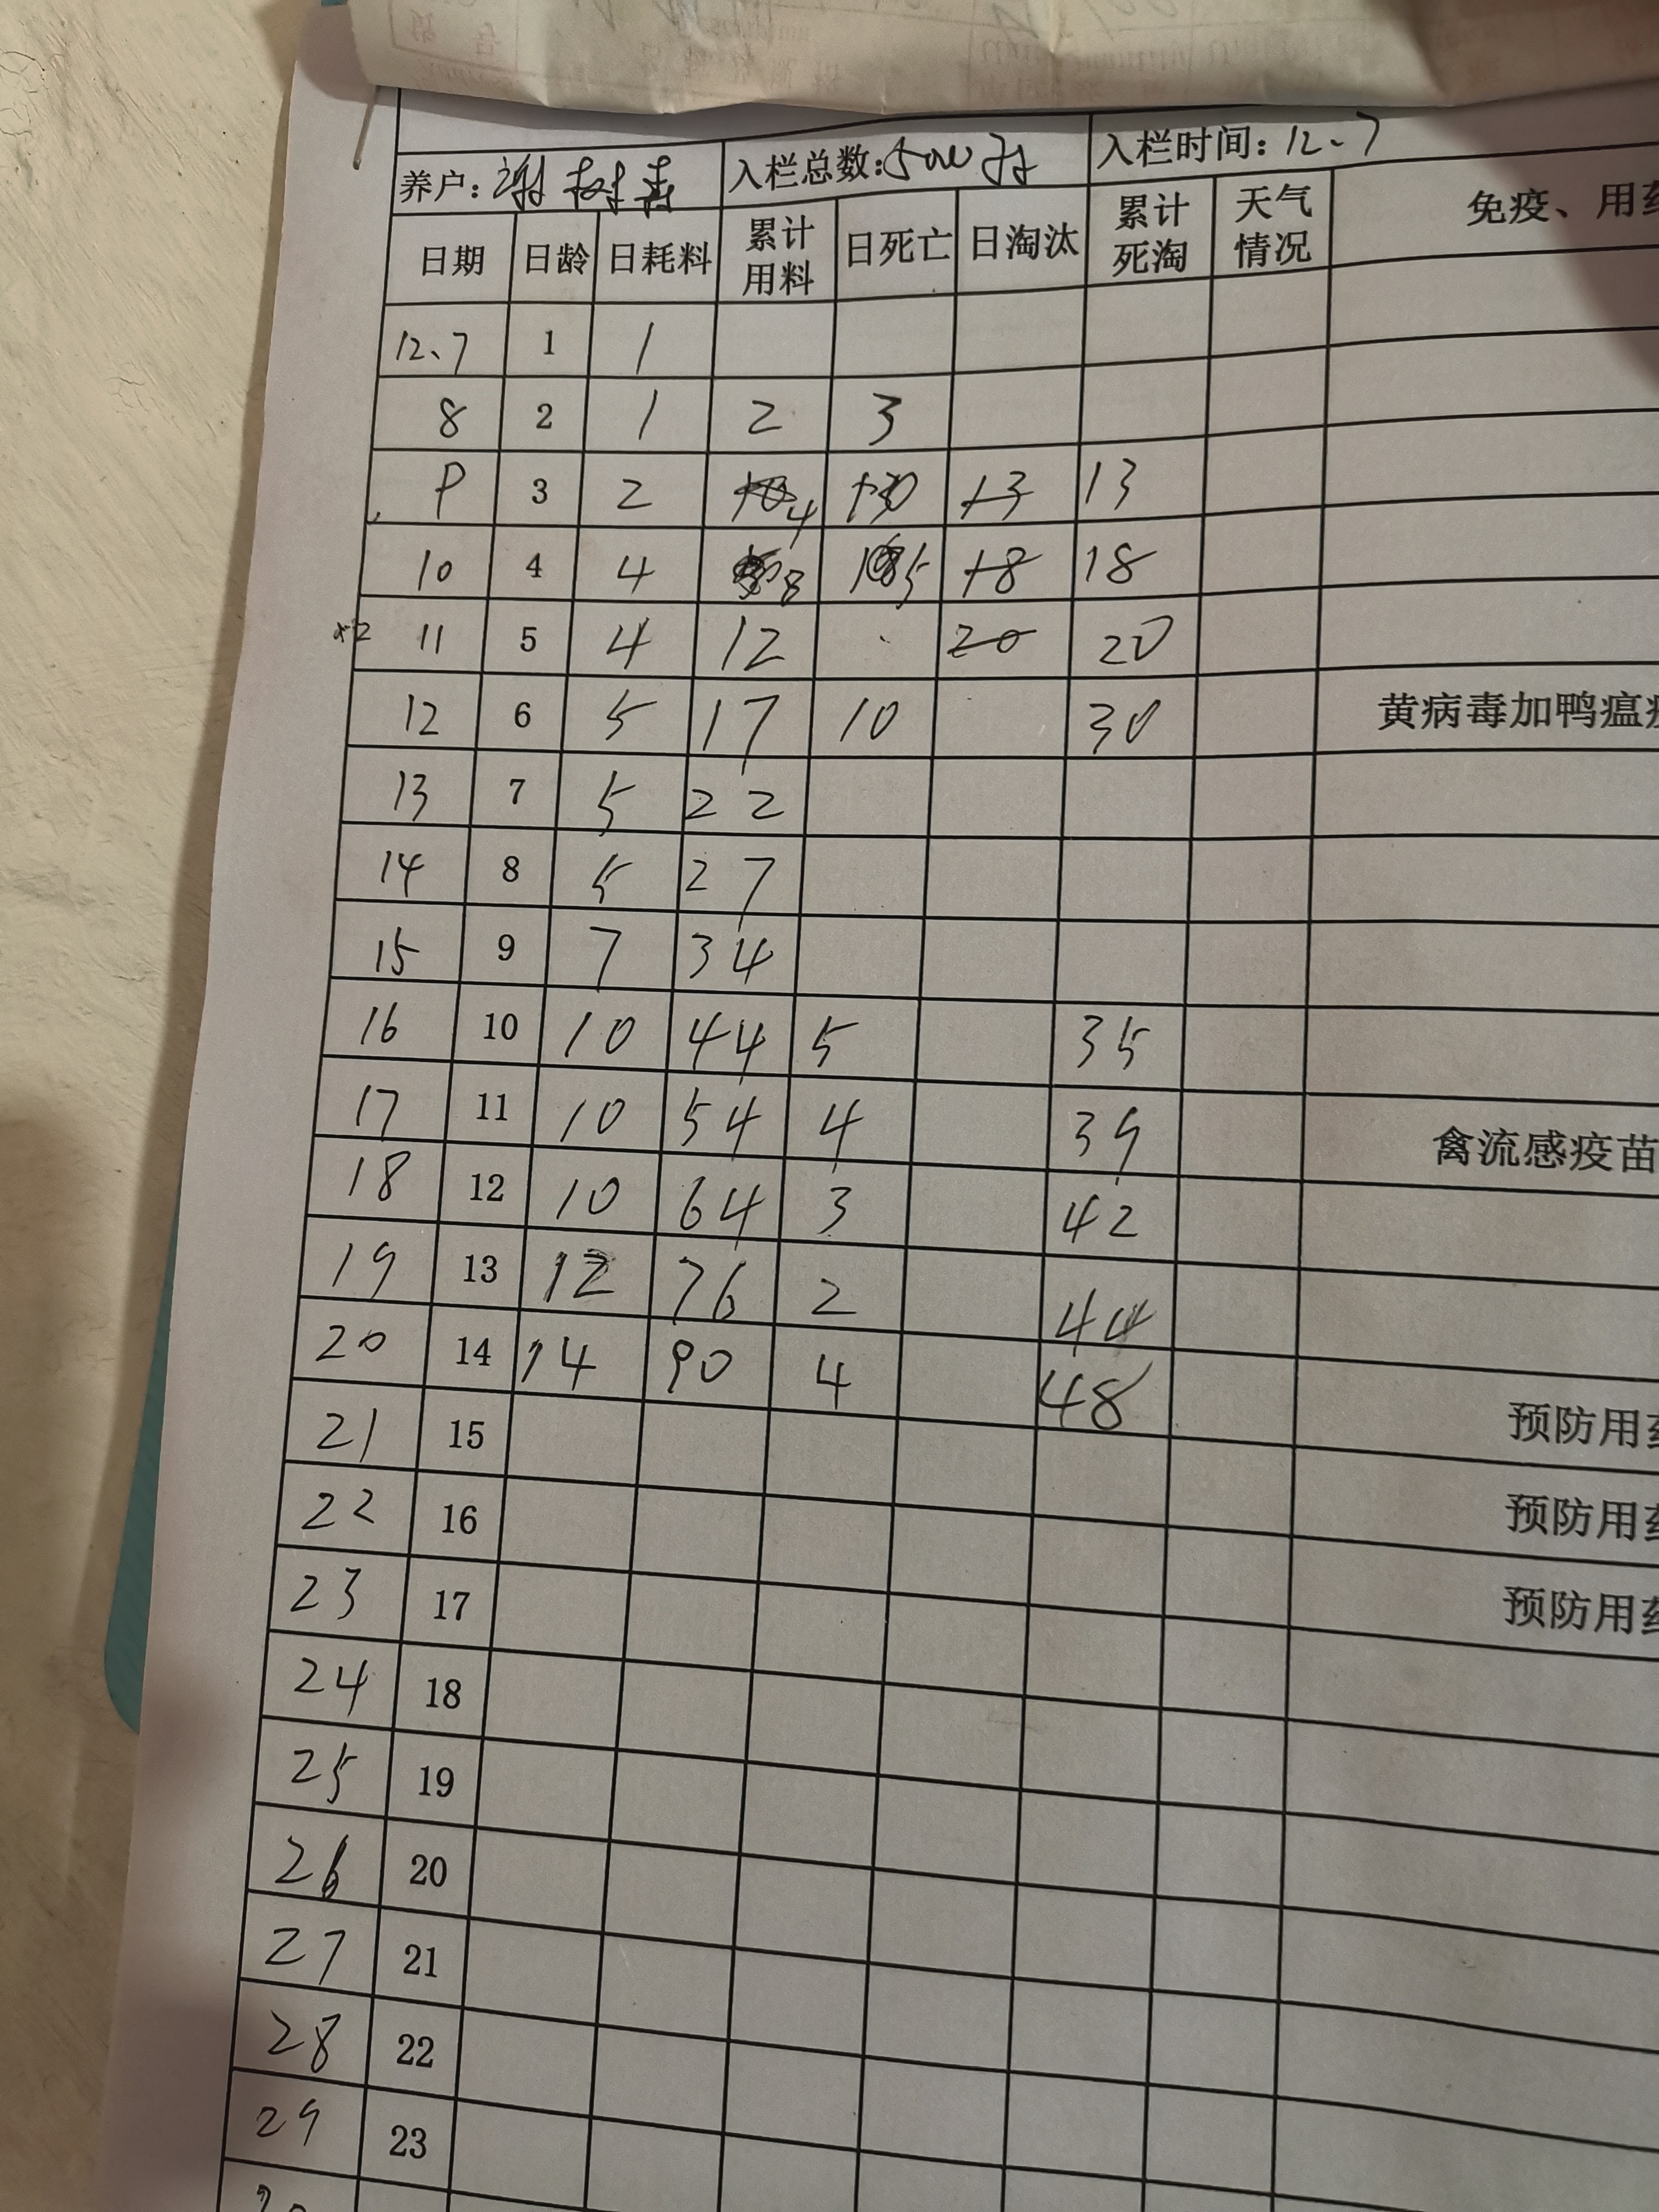 养户：谢树 入栏总数：5000 入栏时间：12、7
日期 日龄 日耗料 累计用料 日死亡 日淘汰 累计死淘 天气情况 免疫、用药
12、7 1 1
8 2 1 2 3
9 3 2 4 10 13 13
10 4 4 8 5 18 18
×2 11 5 4 12 20 20
12 6 5 17 10 30 黄病毒加鸭瘟
13 7 5 22
14 8 5 27
15 9 7 34
16 10 10 44 5 35
17 11 10 54 4 39 禽流感疫苗
18 12 10 64 3 42
19 13 12 76 2 44
20 14 14 90 4 48
21 15 预防用药
22 16 预防用药
23 17 预防用药
24 18
25 19
26 20
27 21
28 22
29 23